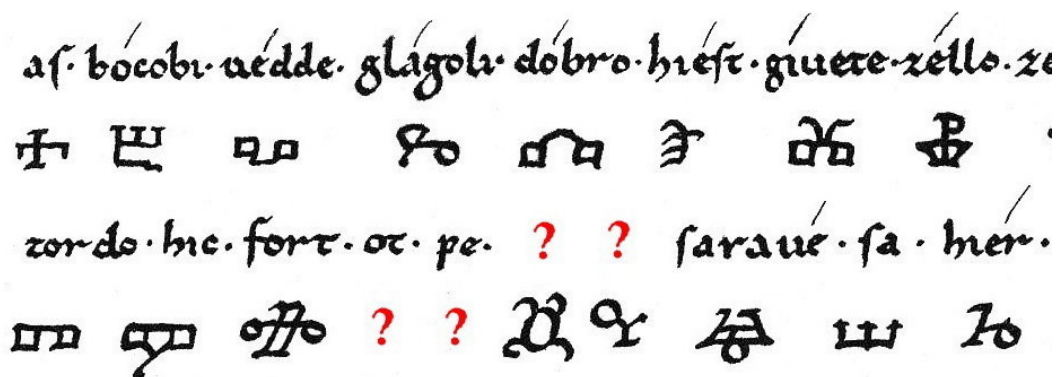 as· bócobi· uédde· glágoli· dóbro· hiést· gíuete· zéllo· ze
Ⰰ Ⰱ Ⰲ Ⰳ Ⰴ Ⰵ Ⰶ
tordo· hic· fort· ot· pe· ? ? saraué· sa· hiér·
Ⱅ Ⱇ ? ? Ⱋ Ⱎ